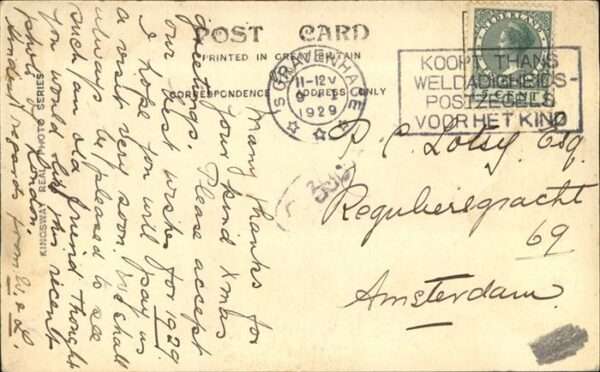 POST CARD
PRINTED IN GREAT BRITAIN
CORRESPONDENCE
ADDRESS ONLY
NEDERLAND
5 CENT
'S GRAVENHAGE
11-12V
9 1
1929
KOOPT THANS
WELDADIGHEIDS-
POSTZEGELS
VOOR HET KIND
KINGSWAY REAL PHOTO SERIES
Many thanks for
your kind Xmas
greetings. Please accept
our best wishes for 1929.
I hope you will pay us
a visit very soon. We shall
always be pleased to see
such an old friend. Thought
you would like this recent
photo of London.
Kindest regards from W. & L.
P. C. Lotsy Esq.
Reguliersgracht
69
Amsterdam.